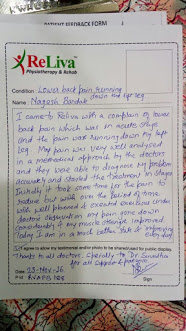 PATIENT FEEDBACK FORM
ReLiva
Physiotherapy & Rehab
Condition: Lower back pain running
down the leg
Name:
I came to Reliva with a complain of lower
back pain which was in acute stage
and the pain was running down my left
leg. My pain was very well analysed
in a methodical approach by the doctors
and they were able to diagnose my problem
accurately and started the treatment in stages
Initially it took some time for the pain to
reduce but with over the period of time
with well planned & executed exercises under
doctors observation my pain gone down
considerably & my muscle strength improved
Today I am in a much better & improving
every day.
I agree to allow my testimonial and/or photo to be shared/used for public display.
Thanks to all doctors. Specially to Dr
for all support & patience.
Date:
Sign